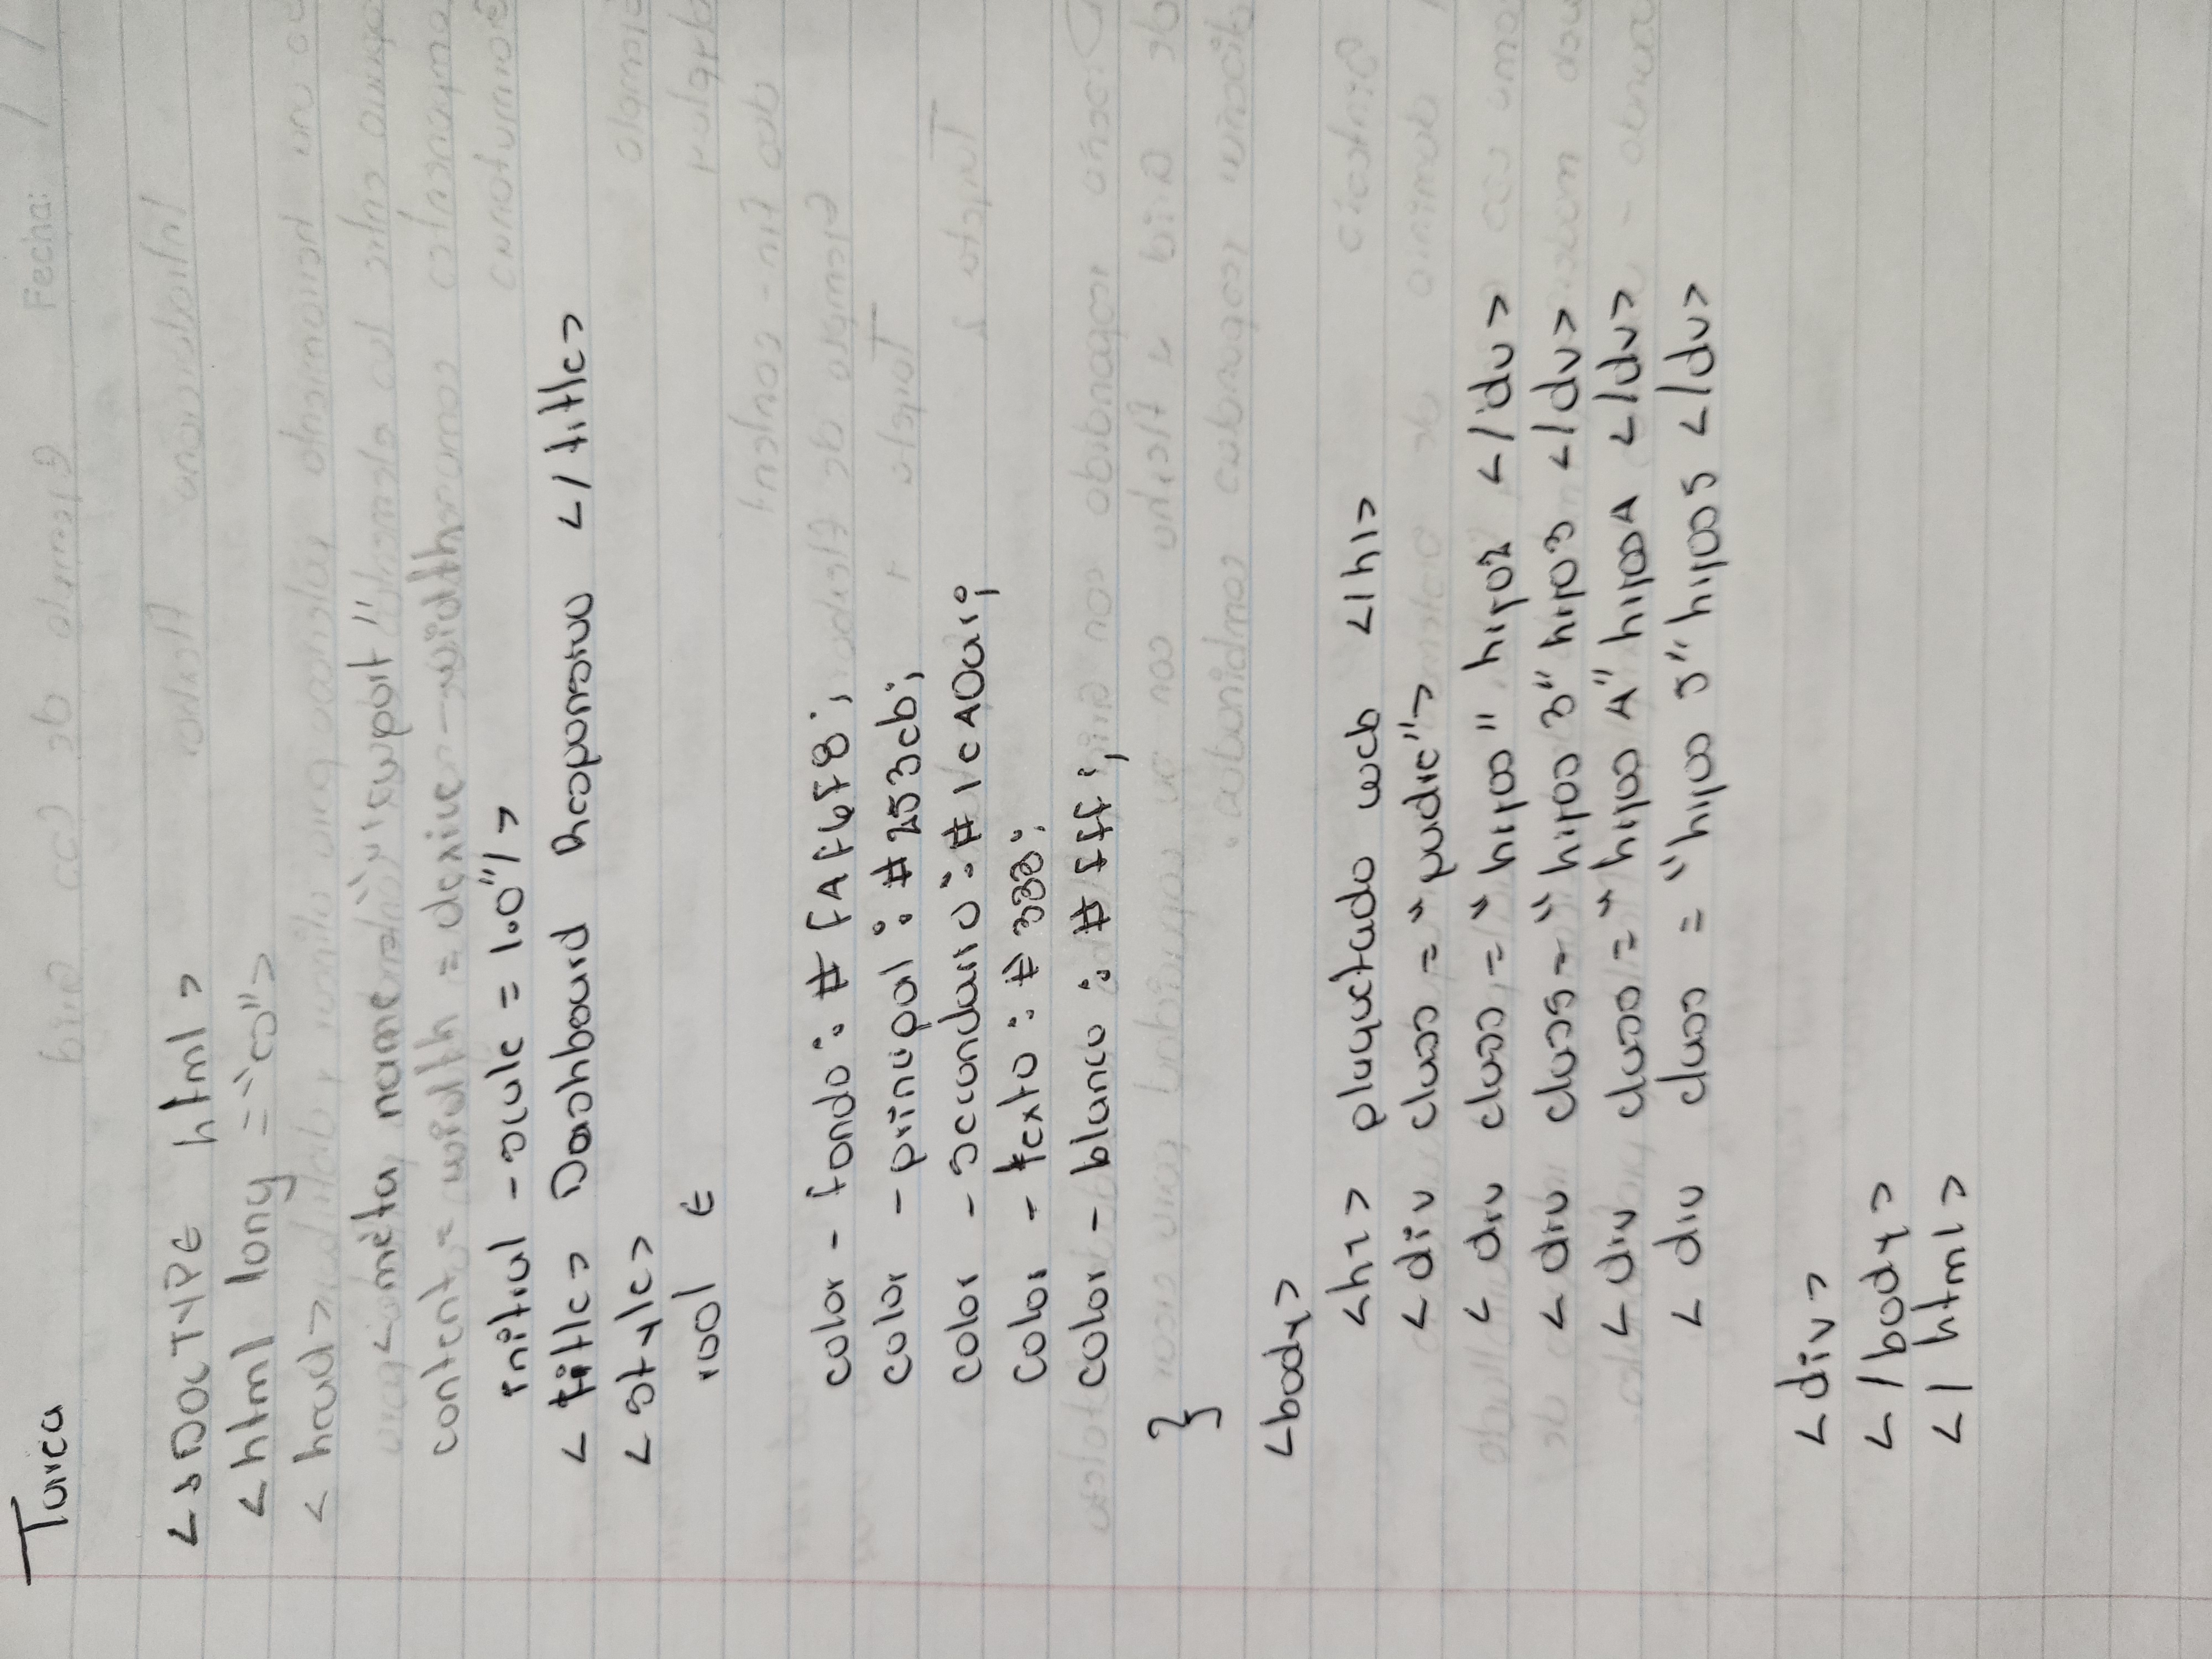 Tarea
Fecha: / /
<!DOCTYPE html>
<html lang = "es">
<head>
<meta name = "viewport"
content = width = device - width
initial - scale = 1.0"/>
<title> Dashboard Responsivo </title>
<style>
root {
color - fondo : # f4f6f8;
color - principal : #253cb;
color - secundario : # 1c40ar;
color - texto : # 333;
color - blanco : # fff ;
}
<body>
<h1> plaquetado web </h1>
<div class = "padre">
< div class = "hijos" hijo2 </div>
< div class = "hijos 3" hijo3 </div>
< div class = "hijos 4" hijos4 </div>
< div class = "hijos 5" hijos5 </div>
<div>
</body>
</html>